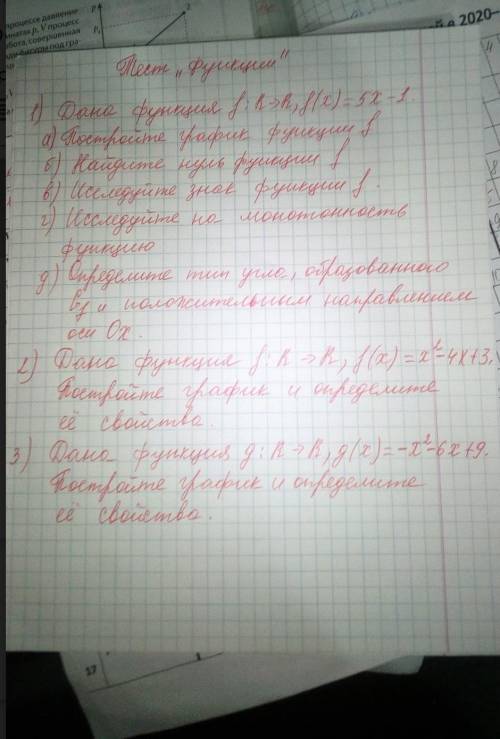 процессе давление
р, V процесс
бота, совершенная
под гра-
й е 2020-
Тест „Функции"
1) Дана функция f: R→R, f(x)=5x-1.
а) Постройте график функции f
б) Найдите нуль функции f
в) Исследуйте знак функции f.
г) Исследуйте на монотонность
функцию
д) Определите тип угла, образованного
Gf и положительным направлением
оси Ох.
2) Дана функция f: R→R, f(x)=x²-4x+3.
Постройте график и определите
её свойства.
3) Дана функция g: R→R, g(x)=-x²-6x+9.
Постройте график и определите
её свойства.
17